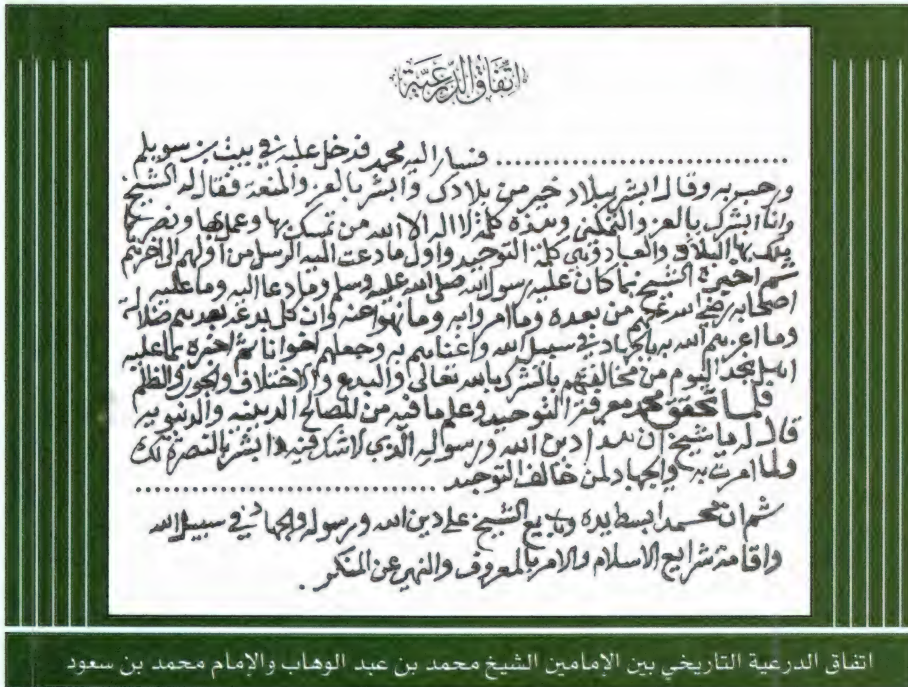 اتِّفَاقُ الدِّرْعِيَّةِ
................................ فسار اليه محمد فدخل عليه في بيت بن سويلم
ورحب به وقال ابشر ببلاد خير من بلادك وابشر بالعز والمنعة فقال له الشيخ
وانا ابشرك بالعز والتمكين وهذه كلمة لا اله الا الله من تمسك بها وعمل بها ونصرها
ملك بها البلاد والعباد وهي كلمة التوحيد واول ما دعت اليه الرسل من اولهم الى اخرهم
ثم اخبره الشيخ بما كان عليه رسول الله صلى الله عليه وسلم وما دعا اليه وما عليه
اصحابه رضي الله عنهم من بعده وما امروا به وما نهوا عنه وان كل بدعة بعدهم ضلالة
وما اعزهم الله به بالجهاد في سبيل الله واغناهم به وجعلهم اخوانا ثم اخبره بما عليه
اهل نجد اليوم من مخالفتهم بالشرك بالله تعالى والبدع والاختلاف والجور والظلم
فلما تحقق محمد معرفة التوحيد وعلم ما فيه من المصالح الدينية والدنيوية
قال له يا شيخ ان هذا دين الله ورسوله الذي لا شك فيه وابشر بالنصرة لك
ولما امرت به والجهاد لمن خالف التوحيد ................................
ثم ان محمد ابسط يده وبايع الشيخ على دين الله ورسوله والجهاد في سبيل الله
واقامة شرايع الاسلام والامر بالمعروف والنهي عن المنكر .
اتفاق الدرعية التاريخي بين الإمامين الشيخ محمد بن عبد الوهاب والإمام محمد بن سعود